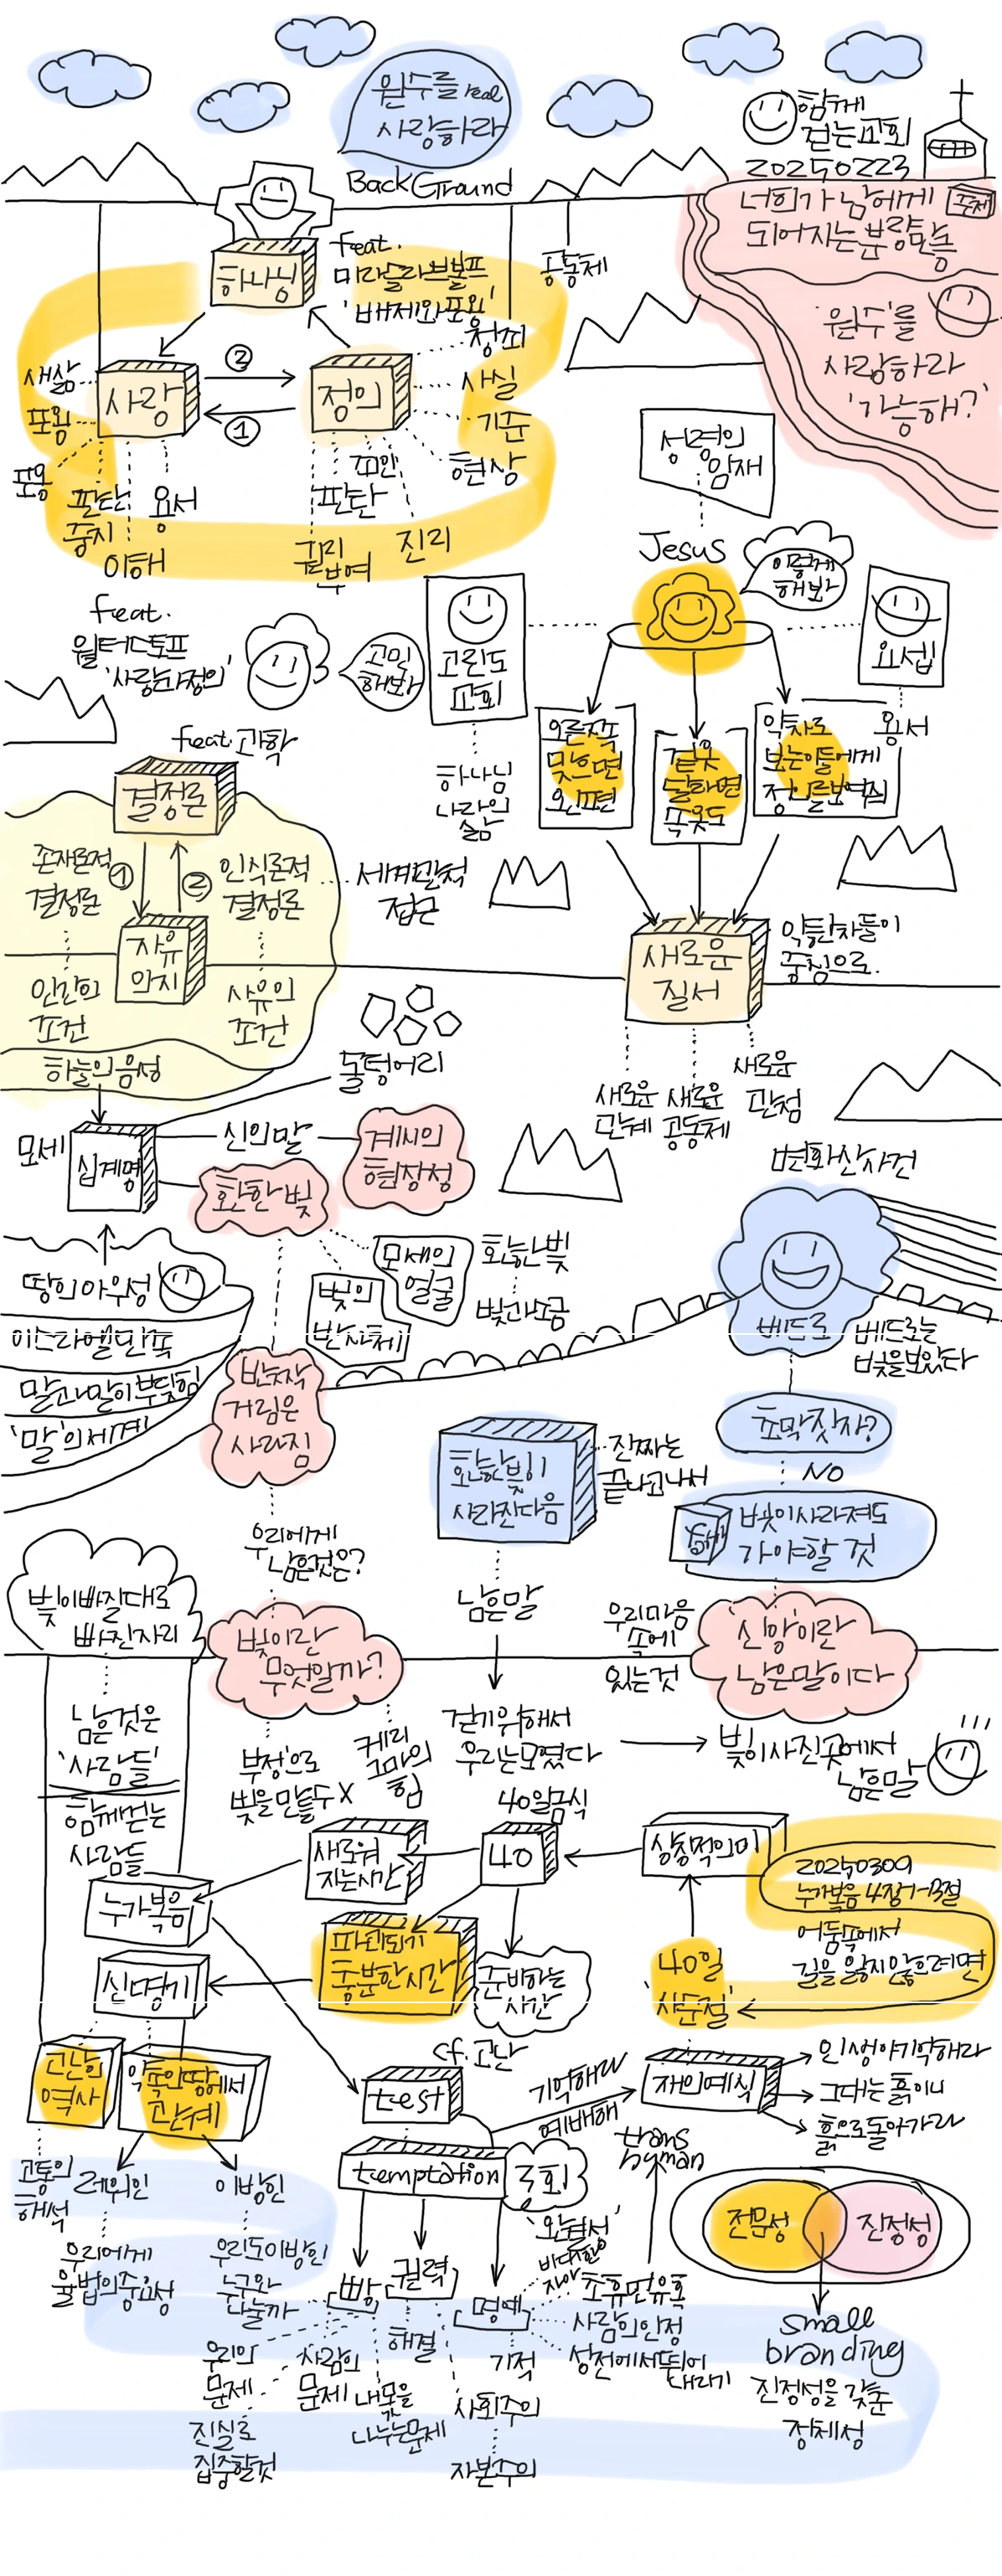 원수를 real
사랑하라
함께
걷는교회
20250223
BackGround
너희가 남에게
되어지는 분량만큼
주제
'원수'를
사랑하라
'가능해?'
하나님
feat.
미라슬라브볼프
'배제와포용'
공동체
사랑
②
①
정의
새삶
포용
판단
중지
이해
용서
정죄
사실
기준
현상
판단
권리
부여
진리
성령의
임재
Jesus
이렇게
해봐
feat.
월터스토프
'사랑과정의'
고민
해봐
고린도
교회
하나님
나라의
삶
요셉
용서
오른쪽
맞으면
왼편
겉옷
달라면
속옷도
약자로
보는이들에게
정의를보여줘
feat.과학
결정론
존재론적
결정론
①
②
인식론적
결정론
세계관적
접근
자유
의지
인간의
조건
사유의
조건
하늘의음성
새로운
질서
약한자들이
중심으로.
새로운
관계
새로운
공동체
새로운
관점
돌덩어리
모세
십계명
신의말
계시의
현장성
환한빛
모세의
얼굴
빛의
반사체
환한빛
빛과소금
변화산사건
땅의아우성
이스라엘민족
말과말이부딪힘
'말'의세계
베드로
베드로는
빛을보았다
반짝
거림은
사라짐
초막짓자?
NO
환한빛이
사라진다음
진짜는
끝나고나서
빛이사라져도
가야할 것
우리에게
남은것은?
남은말
빛이빠질대로
빠진자리
빛이란
무엇일까?
우리마음
속에
있는것
'신앙'이란
남은말이다
남은것은
'사람들'
함께걷는
사람들
부정으로
빛을만들수X
케리
그마의
힘
걷기위해서
우리는모였다
빛이사진곳에서
남은말
40일금식
새로워
지는시간
40
상징적의미
20250309
누가복음4장1-13절
어둠속에서
길을잃지않으려면
누가복음
신명기
파괴되기
충분한시간
준비하는
시간
40일
'사순절'
cf.고난
고난의
역사
약속의땅에서
관계
test
기억해라
예배해
재의예식
인생아기억하라
그대는흙이니
흙으로돌아가라
고통의
해석
레위인
이방인
temptation
3회
trans
human
우리에게
율법의중요성
우리도이방인
누구와
나눌까
빵
권력
명예
'완벽성'
자아
초휴먼유혹
사람의인정
성전에서뛰어
내리기
전문성
진정성
small
branding
진정성을갖춘
정체성
우리의
문제
진실로
집중할것
사람의
문제
내몫을
나누는문제
해결
기적
사회주의
자본주의